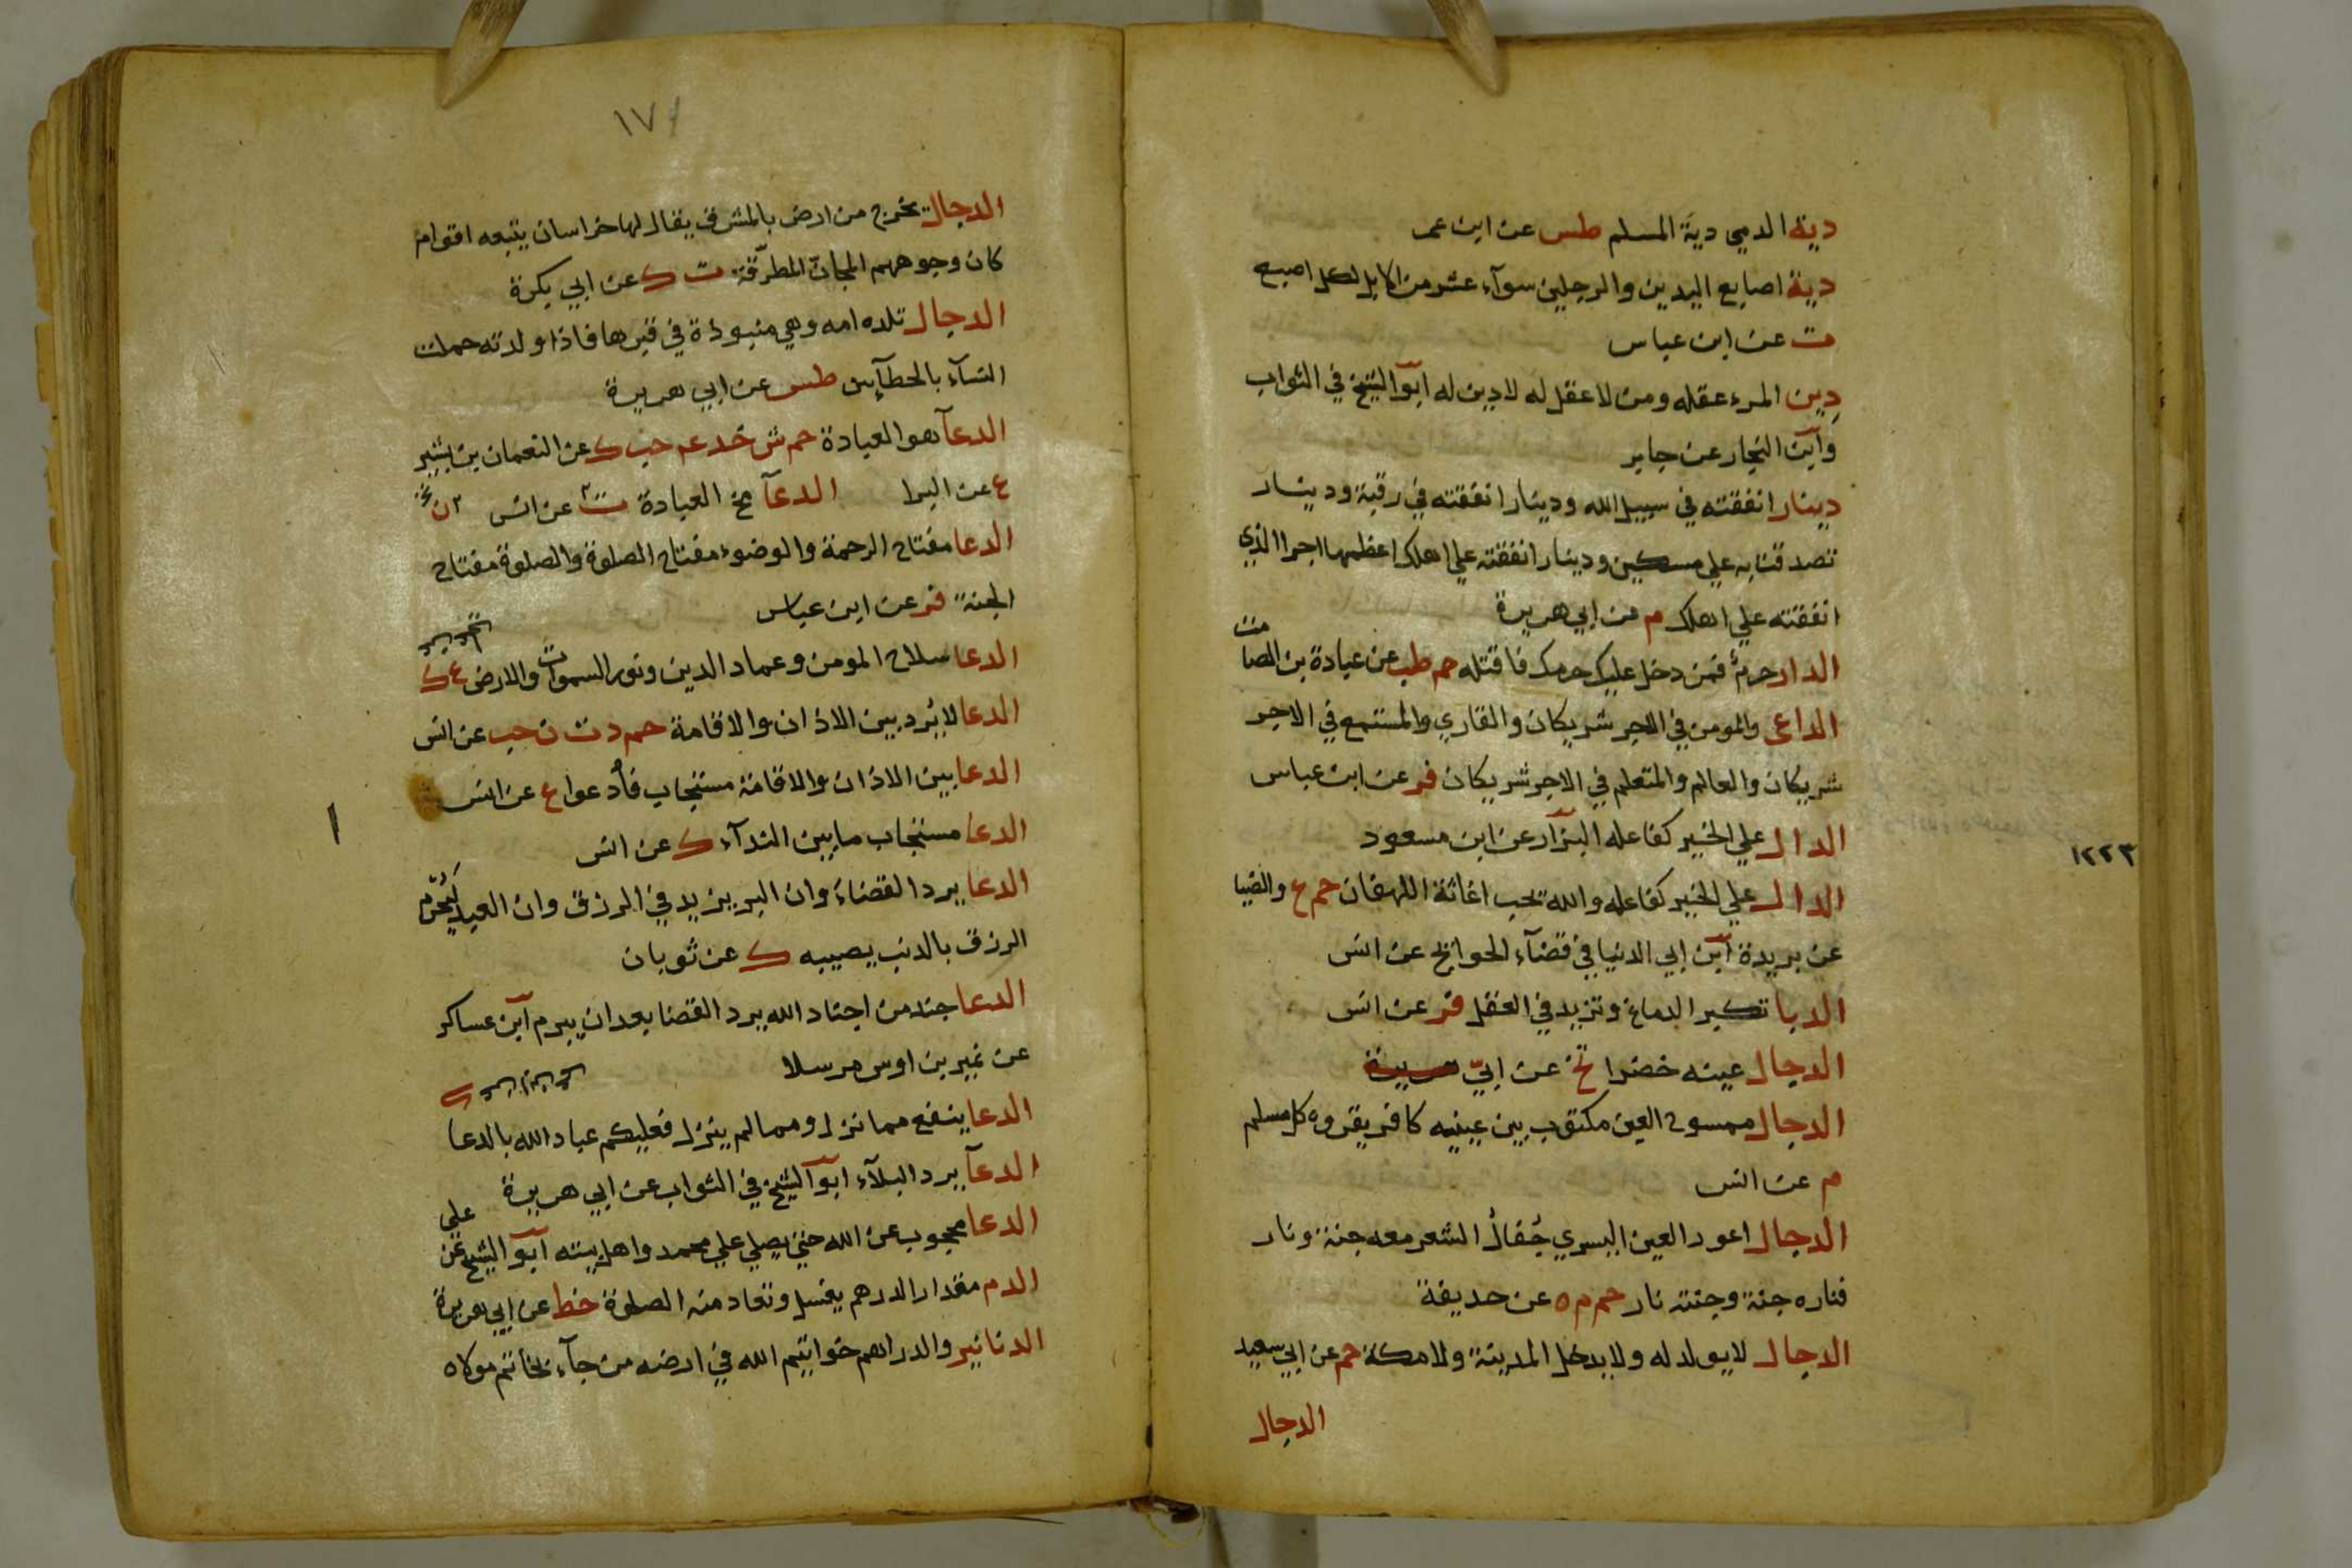 دية الذمي دية المسلم طس عن ابن عمر
دية اصابع اليدين والرجلين سوآء عشر من الابل لكل اصبع
ت عن ابن عباس
دِين المرء عقله ومن لا عقل له لا دين له ابو الشيخ في الثواب
وابن النجار عن جابر
دينار انفقته في سبيل الله ودينار انفقته في رقبة ودينار
تصدقت به علي مسكين ودينار انفقته علي اهلك اعظمها اجرا الذي
انفقته علي اهلك م عن ابي هريرة
الدار حرم فمن دخل عليك حرمك فاقتله حم طب عن عبادة بن الصامت
الداعي والمومن في الاجر شريكان والقاري والمستمع في الاجر
شريكان والعالم والمتعلم في الاجر شريكان فر عن ابن عباس
الدال علي الخير كفاعله البزار عن ابن مسعود
١٢٢٣
الدال علي الخير كفاعله والله يحب اغاثة اللهفان حم ع والضيا
عن بريدة ابن ابي الدنيا في قضآء الحوايج عن انس
الدبا تكبر الدماغ وتزيد في العقل فر عن انس
الدجال عينه خضرا تخ عن ابيّ
الدجال ممسوح العين مكتوب بين عينيه كافر يقروه كل مسلم
م عن انس
الدجال اعور العين اليسري جُفالُ الشعر معه جنة ونار
فناره جنة وجنته نار حم م ه عن حذيفة
الدجال لا يولد له ولا يدخل المدينة ولا مكة حم عن ابي سعيد
الدجال
١٧
الدجال يخرج من ارض بالمشرق يقال لها خراسان يتبعه اقوام
كان وجوههم المجانّ المطرّقة ت ك عن ابي بكرة
الدجال تلده امه وهي منبوذة في قبرها فاذا ولدته حملت
النسآء بالخطآئين طس عن ابي هريرة
الدعآ هو العبادة حم ش خد عم حب ك عن النعمان بن بشير
ع عن البرا الدعآ مخ العبادة ت عن انس
الدعا مفتاح الرحمة والوضوء مفتاح الصلوة والصلوة مفتاح
الجنة فر عن ابن عباس
الدعا سلاح المومن وعماد الدين ونور السموات والارض ع ك
الدعا لا يُرد بين الاذان والاقامة حم د ت ن حب عن انس
الدعا بين الاذان والاقامة مستجاب فادعوا ع عن انس
الدعا مستجاب ما بين الندآء ك عن انس
الدعا يرد القضاء وان البر يزيد في الرزق وان العبد ليُحرَم
الرزق بالذنب يصيبه ك عن ثوبان
الدعا جند من اجناد الله يرد القضا بعد ان يبرم ابن عساكر
عن نمير بن اوس مرسلا
الدعا ينفع مما نزل ومما لم ينزل فعليكم عباد الله بالدعا
الدعآ يرد البلآء ابو الشيخ في الثواب عن ابي هريرة
الدعا محجوب عن الله حتي يصلي علي محمد واهل بيته ابو الشيخ عن علي
الدم مقدار الدرهم يغسل وتعاد منه الصلوة خط عن ابي هريرة
الدنانير والدراهم خواتيم الله في ارضه من جآء بخاتم مولاه